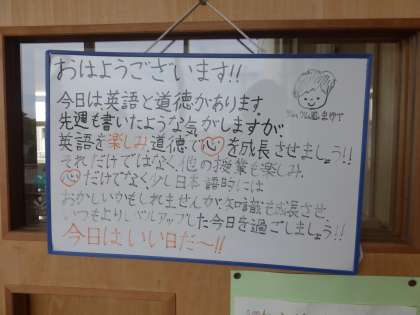 おはようございます!!
今日は、英語と道徳があります。
先週も書いたような気がしますが、
英語を楽しみ道徳で心を成長させましょう!!
それだけではなく、他の授業も楽しみ、
心だけでなく、少し日本語的には
おかしいかもしれませんが、知識も成長させ、
いつもよりレベルアップした今日を過ごしましょう!!
今日はいい日だ〜!!